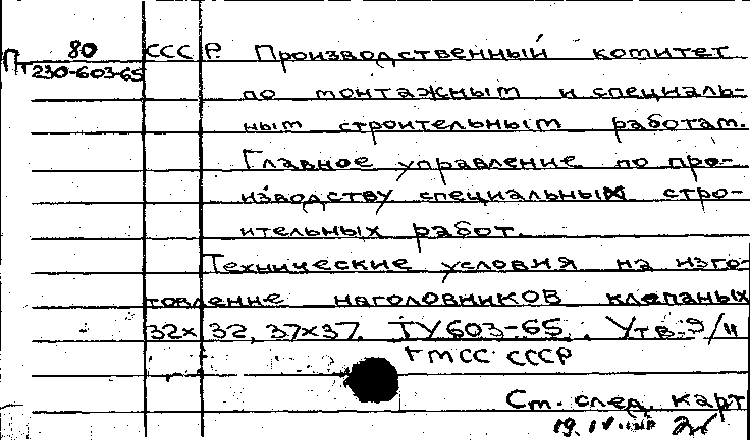 80 СССР. Производственный комитет
Пт 230-603-65
по монтажным и специаль-
ным строительным работам.
Главное управление по про-
изводству специальных стро-
ительных работ.
Технические условия на изго-
товление наголовников клепаных
32х32, 37х37. ТУ603-65. Утв. 9/II
ГМСС СССР
См. след. карт
19.IV